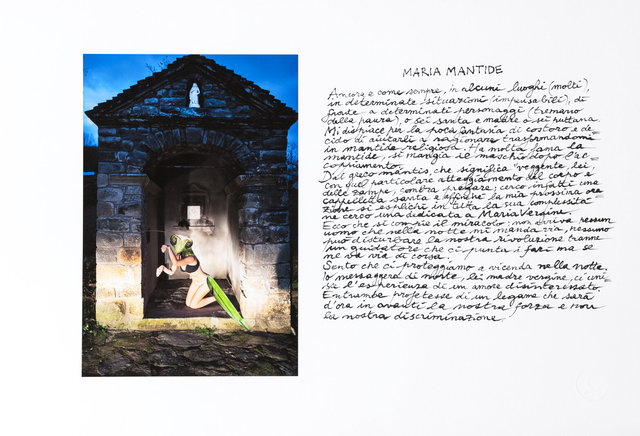 MARIA MANTIDE
Ancora e come sempre, in alcuni luoghi (molti),
in determinate situazioni (impensabili), di
fronte a determinati personaggi (tremano
dalla paura), o sei santa e madre o sei puttana.
Mi dispiace per la poca fantasia di costoro e de-
cido di aiutarli a ragionare trasformandomi
in mantide religiosa. Ha molta fama la
mantide, si mangia il maschio dopo l'ac-
coppiamento.
Dal greco mantis, che significa "veggente, lei
con quel particolare atteggiamento del corpo e
delle zampe, sembra pregare; cerco infatti una
cappelletta santa e affinché la mia prossima ora-
zione si esplichi in tutta la sua complessità
ne cerco una dedicata a Maria Vergine.
Ecco che si compie il miracolo: non arriva nessun
uomo che nella notte mi manda via, nessuno
può disturbare la nostra rivoluzione tranne
un guidatore che ci punta i fari ma se
ne va via di corsa.
Sento che ci proteggiamo a vicenda nella notte,
io messaggera di morte, lei madre vergine, ci uni-
sce l'esperienza di un amore disinteressato.
Entrambe professe di un legame che sarà
d'ora in avanti la nostra forza e non
la nostra discriminazione.